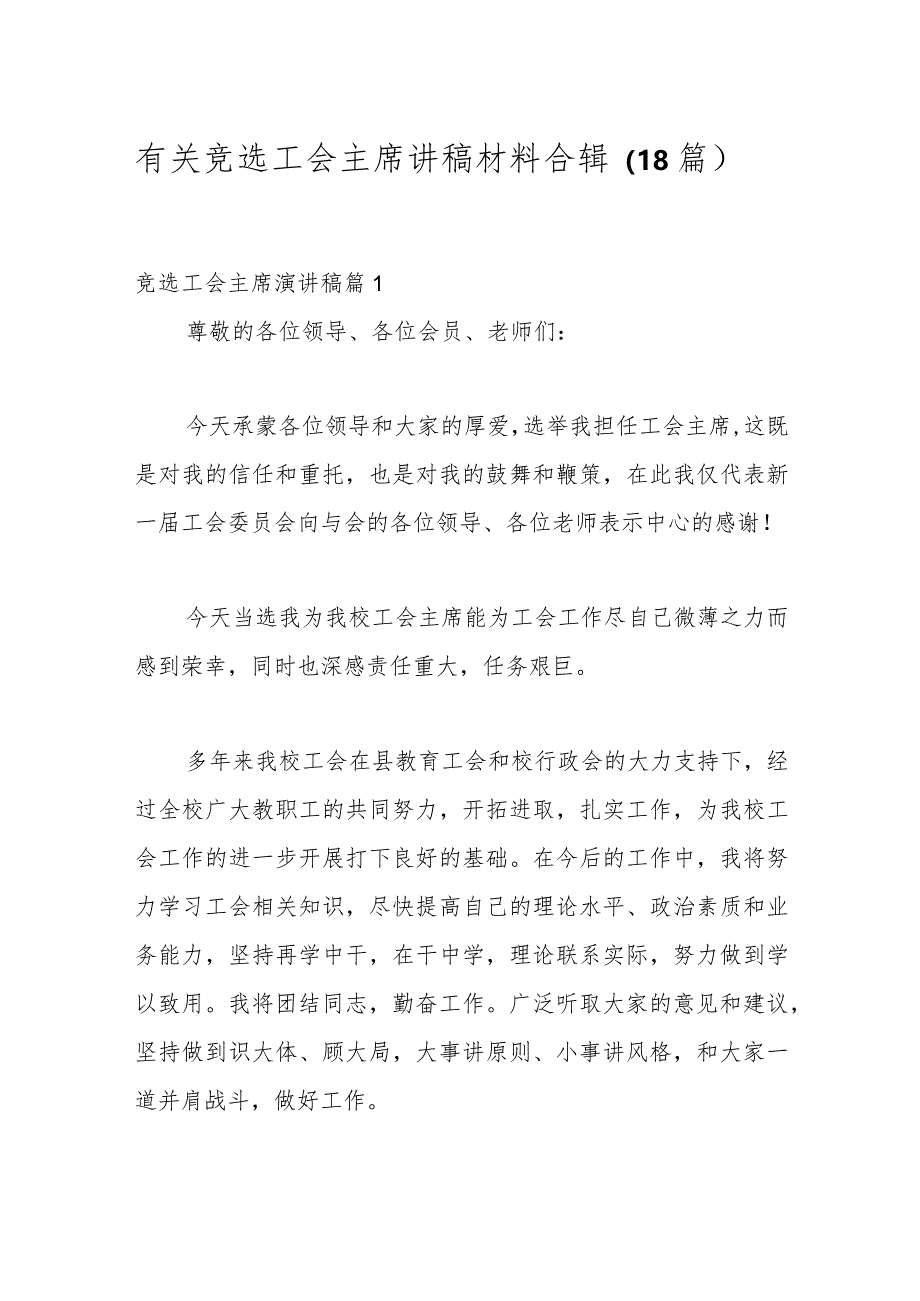 有关竞选工会主席讲稿材料合辑 (18 篇）
竞选工会主席演讲稿篇 1
尊敬的各位领导、各位会员、老师们：
今天承蒙各位领导和大家的厚爱,选举我担任工会主席,这既
是对我的信任和重托，也是对我的鼓舞和鞭策，在此我仅代表新
一届工会委员会向与会的各位领导、各位老师表示中心的感谢！
今天当选我为我校工会主席能为工会工作尽自己微薄之力而
感到荣幸，同时也深感责任重大，任务艰巨。
多年来我校工会在县教育工会和校行政会的大力支持下，经
过全校广大教职工的共同努力，开拓进取，扎实工作，为我校工
会工作的进一步开展打下良好的基础。在今后的工作中，我将努
力学习工会相关知识，尽快提高自己的理论水平、政治素质和业
务能力，坚持再学中干，在干中学，理论联系实际，努力做到学
以致用。我将团结同志，勤奋工作。广泛听取大家的意见和建议，
坚持做到识大体、顾大局，大事讲原则、小事讲风格，和大家一
道并肩战斗，做好工作。